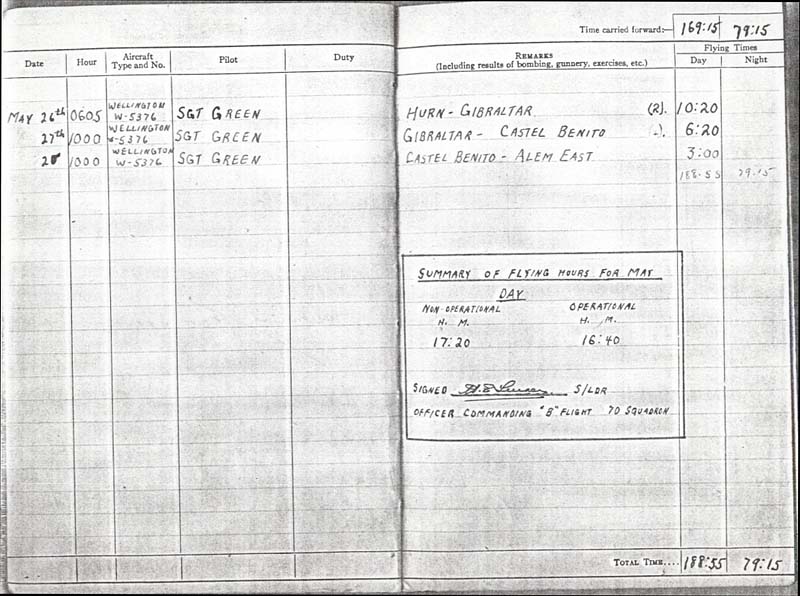 Time carried forward:— 169:15 79:15
Date Hour Aircraft Type and No. Pilot Duty REMARKS (Including results of bombing, gunnery, exercises, etc.) Flying Times Day Night
MAY 26th 0605 WELLINGTON W-5376 SGT GREEN HURN - GIBRALTAR (2). 10:20
27th 1000 WELLINGTON W-5376 SGT GREEN GIBRALTAR - CASTEL BENITO 6:20
1000 WELLINGTON W-5376 SGT GREEN CASTEL BENITO - ALEM EAST 3:00
188.55 79.15
SUMMARY OF FLYING HOURS FOR MAY
DAY
NON-OPERATIONAL OPERATIONAL
H. M. H. M.
17:20 16:40
SIGNED S/LDR
OFFICER COMMANDING "B" FLIGHT 70 SQUADRON
TOTAL TIME.... 188:55 79:15